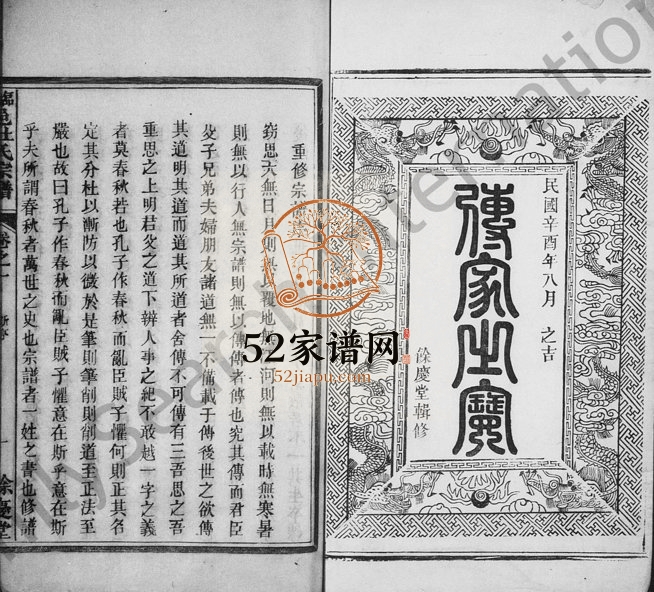 民國辛酉年八月 之吉
傳家之寶
餘慶堂輯修
重修宗
竊思天無日月則無 覆地無 河則無以載時無寒暑
則無以行人無宗譜則無以傳傳者傳也究其傳而君臣
父子兄弟夫婦朋友諸道無一不備載于傳後世之欲傳
其道明其道而道其所道者舍傳不可傳有三吾思之吾
重思之上明君父之道下辨人事之紀不敢越一字之義
者莫春秋若也孔子作春秋而亂臣賊子懼何則正其名
定其分杜以漸防以微於是筆則筆削則削道至正法至
嚴也故曰孔子作春秋而亂臣賊子懼意在斯乎意在斯
乎夫所謂春秋者萬世之史也宗譜者一姓之書也修譜
氏宗譜
卷之一
一
餘慶堂
52家谱网
52jiapu.com